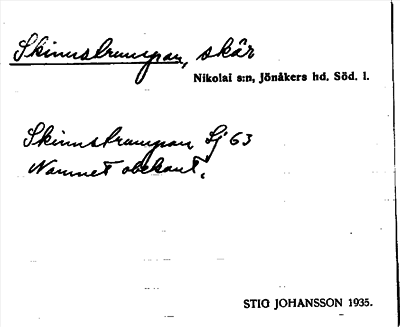 Skinnstrumpan, skär
Nikolai s:n, Jönåkers hd, Söd. l.
Skinnstrumpan Sj 63
Namnet obekant.
STIG JOHANSSON 1935.